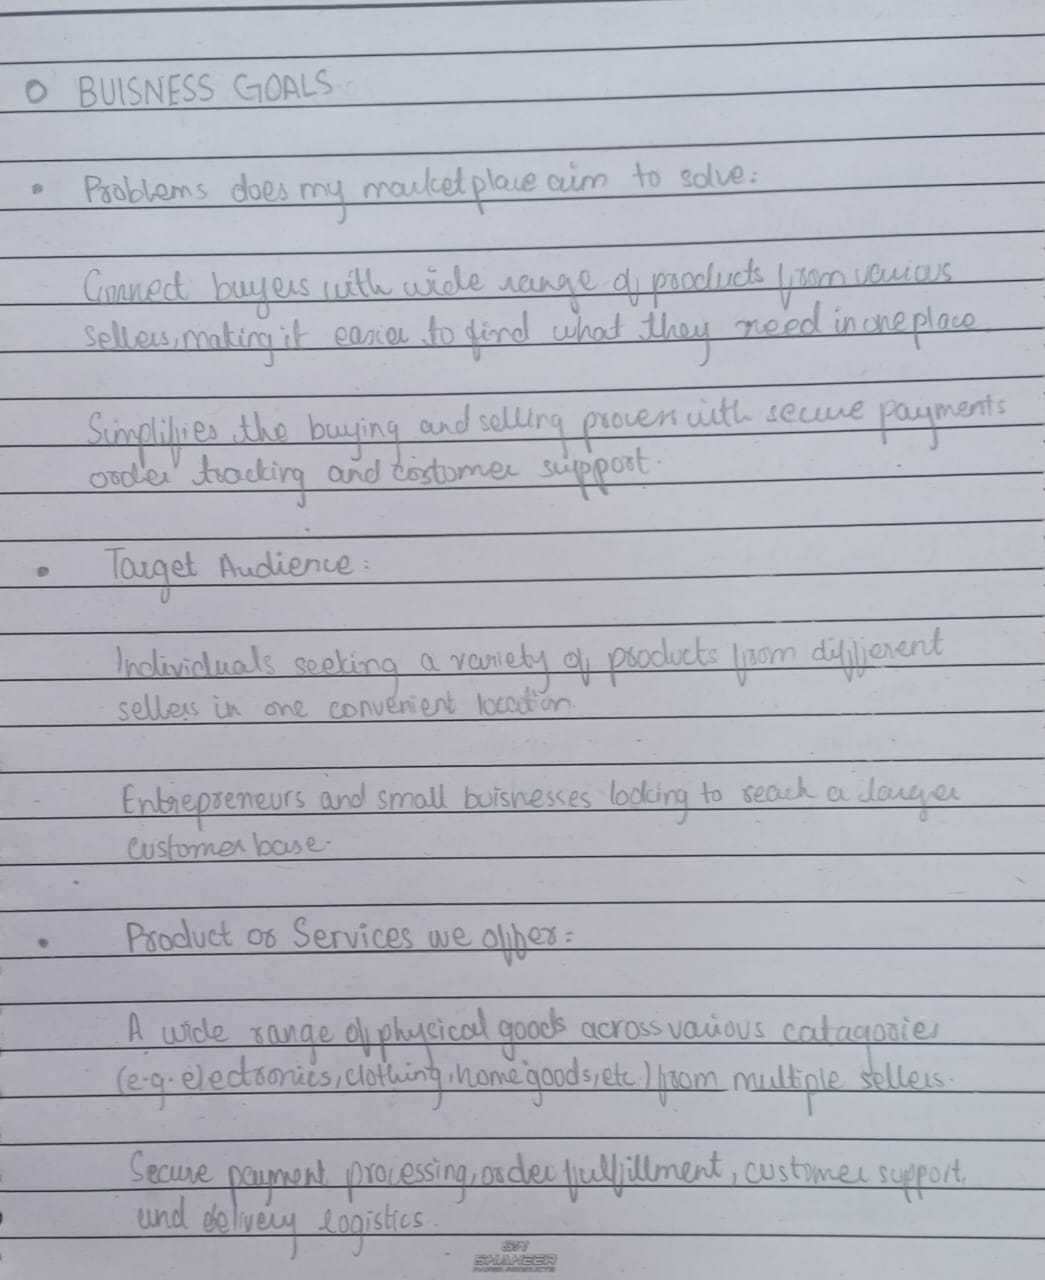 O BUISNESS GOALS
• Problems does my marketplace aim to solve:
Connect buyers with wide range of products from various
sellers, making it easier to find what they need in one place
Simplifies the buying and selling process with secure payments
order tracking and costomer support.
• Target Audience:
Individuals seeking a variety of products from different
sellers in one convenient location.
Entrepreneurs and small buisnesses looking to reach a larger
customer base.
• Product or Services we offer:
A wide range of physical goods across various catagories
(e.g. electronics, clothing, home goods, etc.) from multiple sellers.
Secure payment processing, order fulfillment, customer support,
and delivery logistics.
SHAHEER
PAPER PRODUCTS